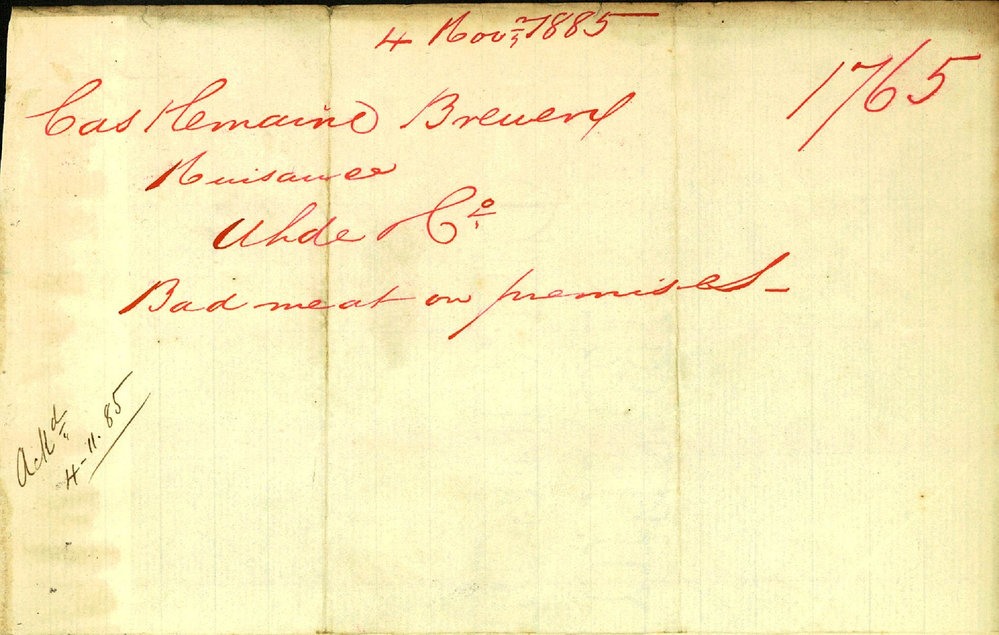 4 Novr 1885
1765
Castlemaine Brewery
Nuisance
Uhde & Co
Bad meat on premises -
Ackd
4-11.85